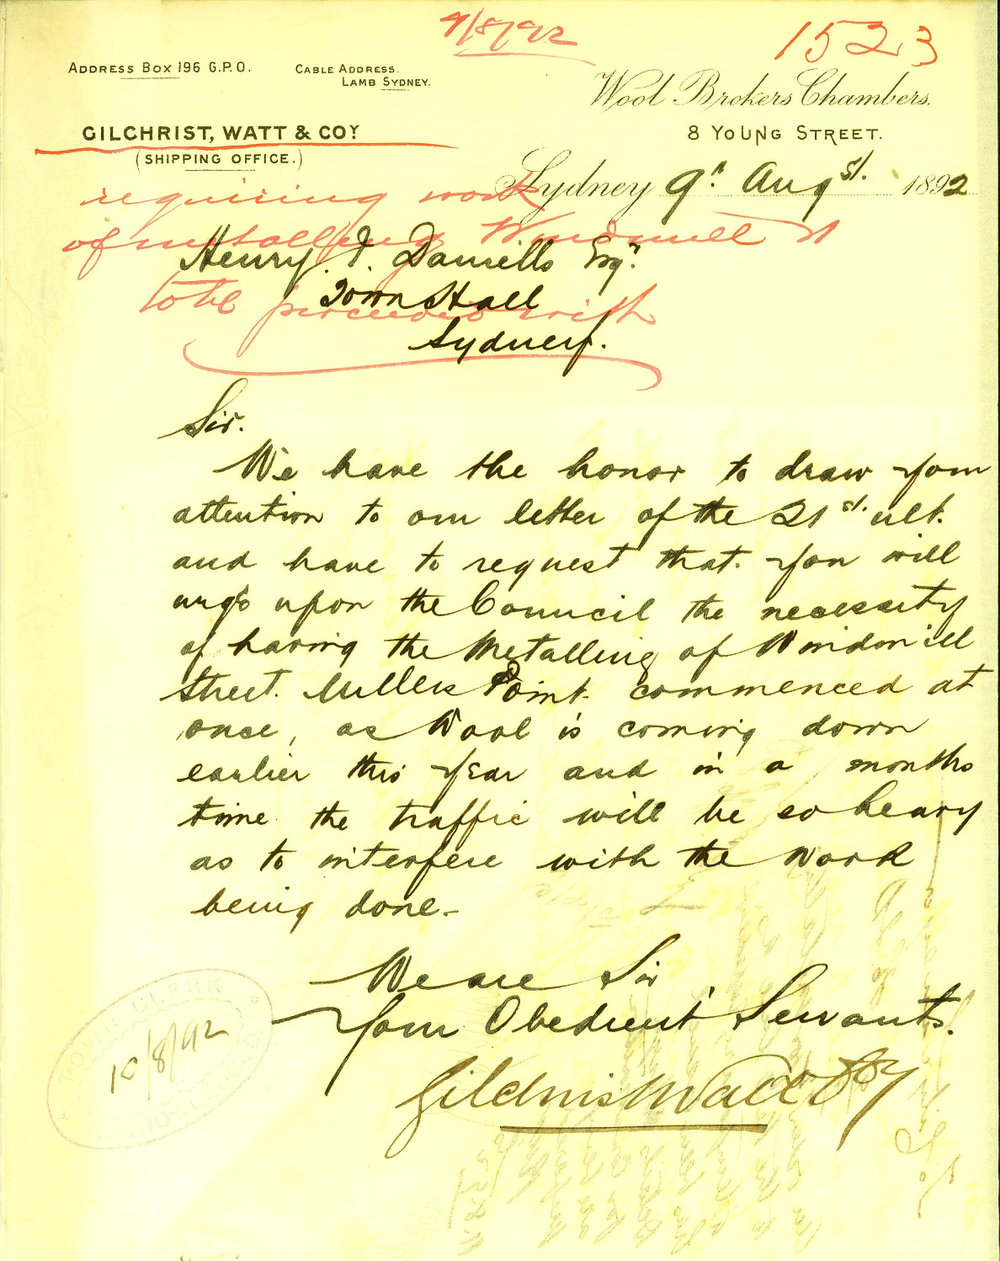 9/8/92
1523
ADDRESS BOX 196 G.P.O.
CABLE ADDRESS.
LAMB SYDNEY.
Wool Brokers Chambers.
8 YOUNG STREET.
GILCHRIST, WATT & COY.
(SHIPPING OFFICE.)
Sydney 9th Augst. 1892
requiring work
of metalling Windmill St
to be proceeded with
Henry J. Daniells Esqr.
Town Hall
Sydney.
Sir.
We have the honor to draw your
attention to our letter of the 21st. ult.
and have to request that you will
urge upon the Council the necessity
of having the Metalling of Windmill
Street. Millers Point commenced at
once, as Wool is coming down
earlier this year and in a months
time the traffic will be so heavy
as to interfere with the work
being done-
We are Sir
Your Obedient Servants.
Gilchrist Watt & Coy
TOWN CLERK
10/8/92